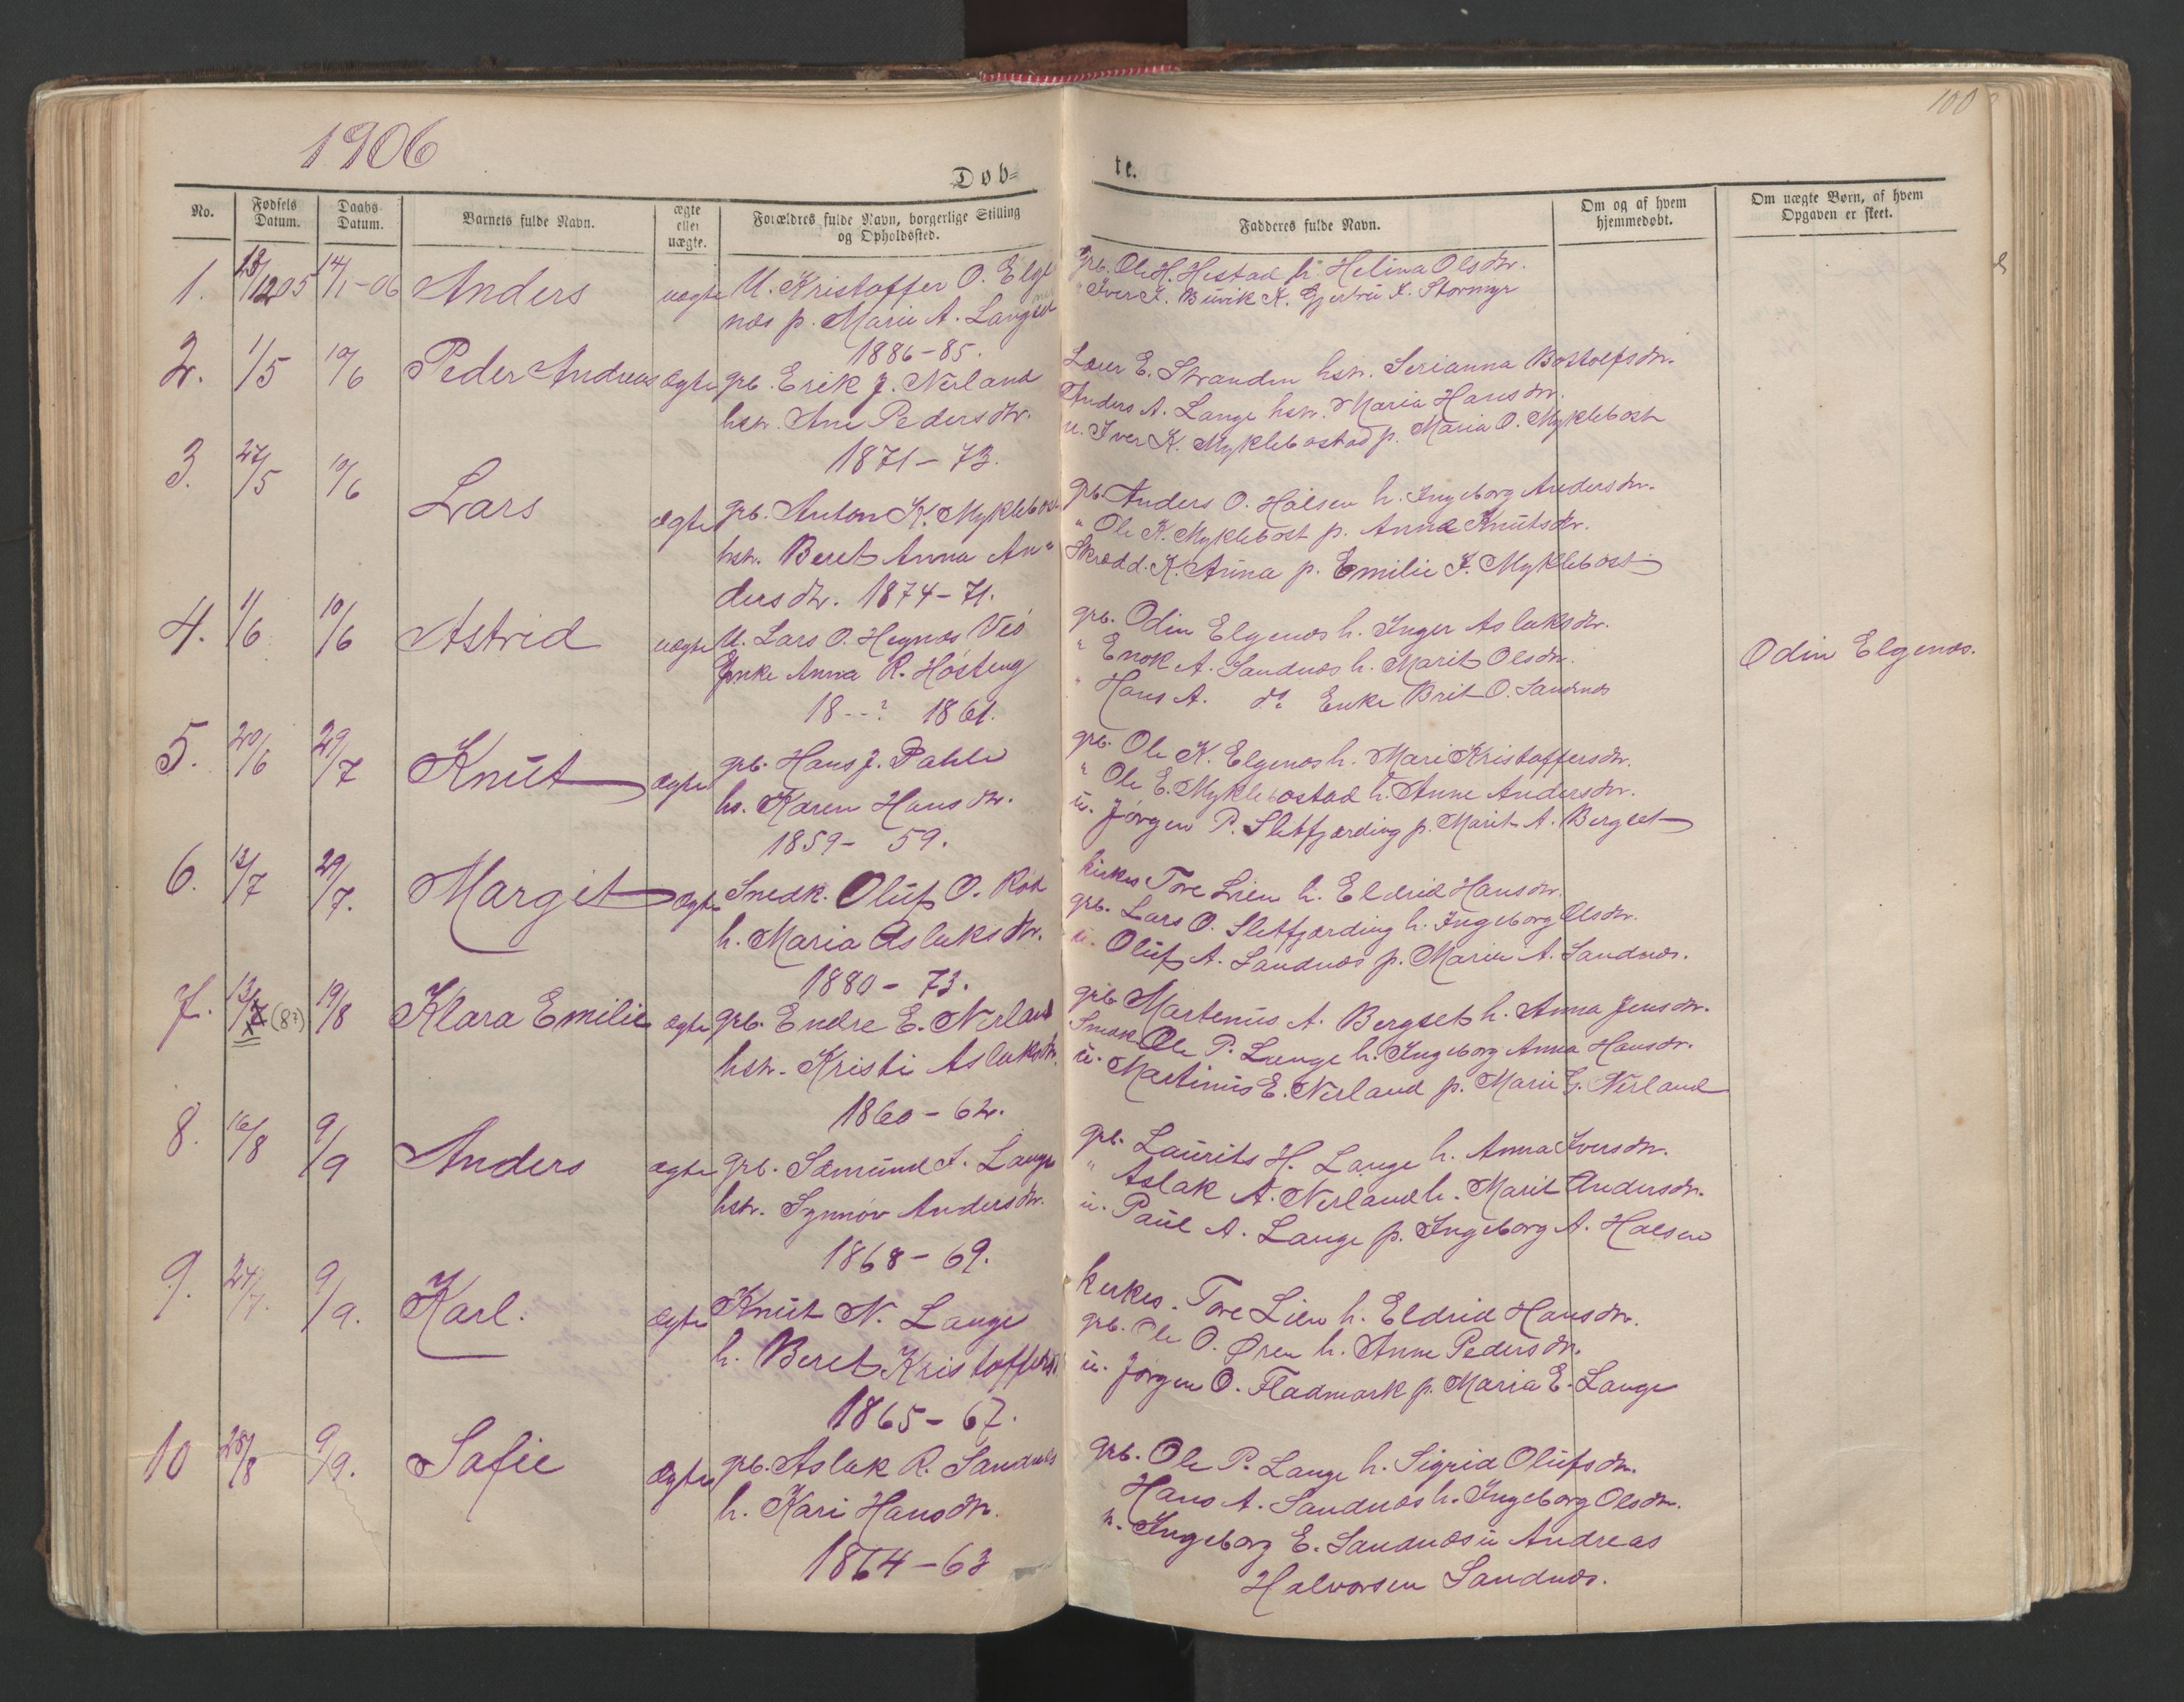 1906
100
Døb=
te.
No.
Fødsels Datum.
Daabs Datum.
Barnets fulde Navn.
ægte eller uægte.
Forældres fulde Navn, borgerlige Stilling og Opholdssted.
Fadderes fulde Navn.
Om og af hvem hjemmedøbt.
Om uægte Børn, af hvem Opgaven er skeet.
1. 28/12 05 14/1-06 Anders uægte U. Kristoffer O. Elge
næs p. Marie A. Langset
1886-85.
grb. Ole H. Hestad h. Helina Olsdtr.
" Iver I. Buvik K. Gjertru K. Stormyr
2. 1/5 10/6 Peder Andreas ægte grb. Erik J. Nerland
hstr. Ane Pedersdtr.
1871-73.
Lærer E. Stranden hstr. Serianna Bottolfsdtr.
Anders A. Lange hstr. Maria Hansdtr.
u. Iver K. Myklebostad p. Maria O. Myklebost
3. 27/5 10/6 Lars ægte grb. Anton K. Myklebost
hstr. Beret Anna An"
dersdtr. 1874-71.
grb. Anders O. Halsen h. Ingeborg Andersdtr.
" Ole K. Myklebost p. Anna Knutsdtr.
Skrædd. K. Auna p. Emilie I. Myklebost
4. 1/6 10/6 Astrid uægte U. Lars O. Hegnæs Veø
Enke Anna R. Høsteng
18--? 1861.
grb. Odin Elgenæs h. Inger Aslaksdtr.
" Enok A. Sandnæs h. Marit Olsdtr.
" Hans A. do. Enke Brit O. Sandnæs
Odin Elgenæs.
5. 20/6 29/7 Knut ægte grb. Hans J. Dahle
hs. Karen Hansdtr.
1859- 59.
grb. Ole K. Elgenæs h. Mari Kristoffersdtr.
" Ole E. Myklebostad h. Anne Andersdtr.
u. Jørgen P. Sletfjærding p. Marit A. Bergset
6. 12/7 29/7. Margit ægte Snedk. Oluf O. Rød
h. Maria Aslaksdtr.
1880-73.
kirkes. Tore Lien h. Eldrid Hansdtr.
grb. Lars O. Sletfjærding h. Ingeborg Olsdtr.
u. Oluf A. Sandnæs p. Marie A. Sandnæs.
7. 13/7 (8?) 19/8 Klara Emilie ægte grb. Endre E. Nerland
hstr. Kristi Aslaksdtr.
1860-62.
grb. Martenus A. Bergset h. Anna Jensdtr.
Snedk. Ole P. Lange h. Ingeborg Anna Hansdtr.
u. Martinus E. Nerland p. Marie E. Nerland
8. 16/8 9/9 Anders ægte grb. Sæmund A. Lange
hstr. Synnøv Andersdtr.
1868-69.
grb. Laurits H. Lange h. Anna Iversdtr.
" Aslak A. Nerland h. Marit Andersdtr.
u. Paul A. Lange p. Ingeborg A. Halsen
9. 24/7. 9/9. Karl. ægte Knut N. Lange
h. Beret Kristoffersd
1865-67.
kirkes. Tore Lien h. Eldrid Hansdtr.
grb. Ole O. Øren h. Anne Pedersdtr.
u. Jørgen O. Fladmark p. Maria E. Lange
10 28/8 9/9. Sofie ægte grb. Aslak R. Sandnæs
h. Kari Hansdtr.
1864-63
grb. Ole P. Lange h. Sigrid Olufsdtr.
Hans A. Sandnæs h. Ingeborg Olsdtr.
p. Ingeborg E. Sandnæs u Andreas
Halvorsen Sandnæs.